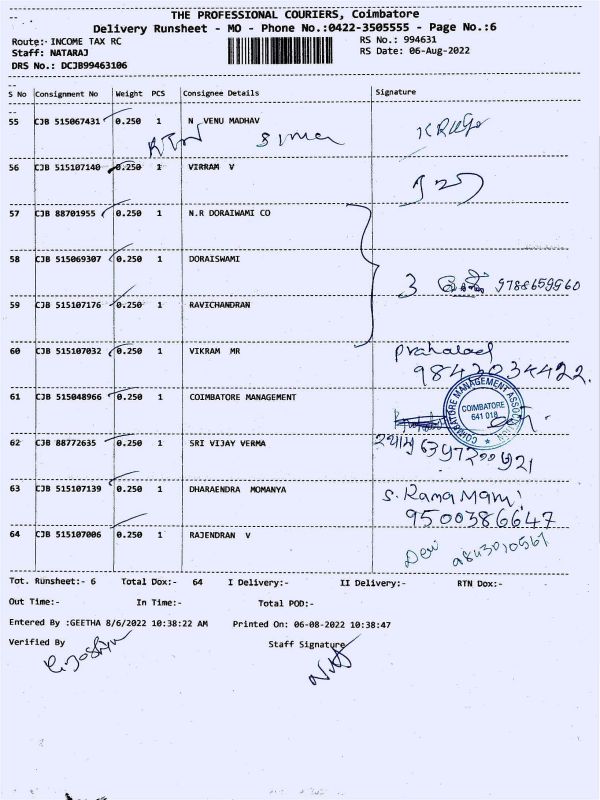 THE PROFESSIONAL COURIERS, Coimbatore
Delivery Runsheet - MO - Phone No.:0422-3505555 - Page No.:6
Route:- INCOME TAX RC RS No.: 994631
Staff: NATARAJ RS Date: 06-Aug-2022
DRS No.: DCJB99463106
S No Consignment No Weight PCS Consignee Details Signature
55 CJB 515067431 0.250 1 N VENU MADHAV
RTN
56 CJB 515107140 0.250 1 VIRRAM V
57 CJB 88701955 0.250 1 N.R DORAIWAMI CO
58 CJB 515069307 0.250 1 DORAISWAMI
3 9788659960
59 CJB 515107176 0.250 1 RAVICHANDRAN
60 CJB 515107032 0.250 1 VIKRAM MR Prahalad
9843034422.
61 CJB 515048966 0.250 1 COIMBATORE MANAGEMENT
COIMBATORE MANAGEMENT ASSOCIATION
COIMBATORE
641 018
62 CJB 88772635 0.250 1 SRI VIJAY VERMA
63 CJB 515107139 0.250 1 DHARAENDRA MOMANYA S. Rama Mami
9500386647
64 CJB 515107006 0.250 1 RAJENDRAN V Devi 9843010567
Tot. Runsheet:- 6 Total Dox:- 64 I Delivery:- II Delivery:- RTN Dox:-
Out Time:- In Time:- Total POD:-
Entered By :GEETHA 8/6/2022 10:38:22 AM Printed On: 06-08-2022 10:38:47
Verified By Staff Signature